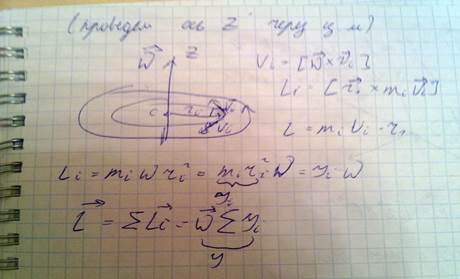 (проведем ось z через ц м)
W⃗ z
Vi = [W⃗ × v⃗i]
Li = [r⃗i × mi v⃗i]
c ri Vi
L = mi Vi · ri
Li = mi W ri² = mi ri² W⃗ = yi W
yi
L⃗ = ΣL⃗i = W⃗ Σ yi
y